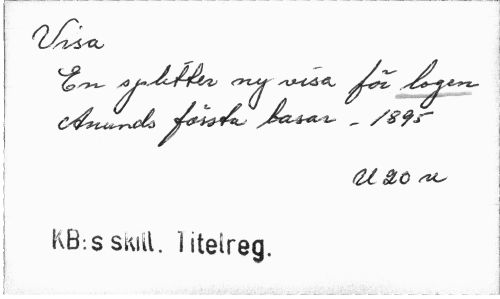 Visa
En splitter ny visa för logen
Anunds första basar - 1895
U 20 u
KB:s skill. Titelreg.